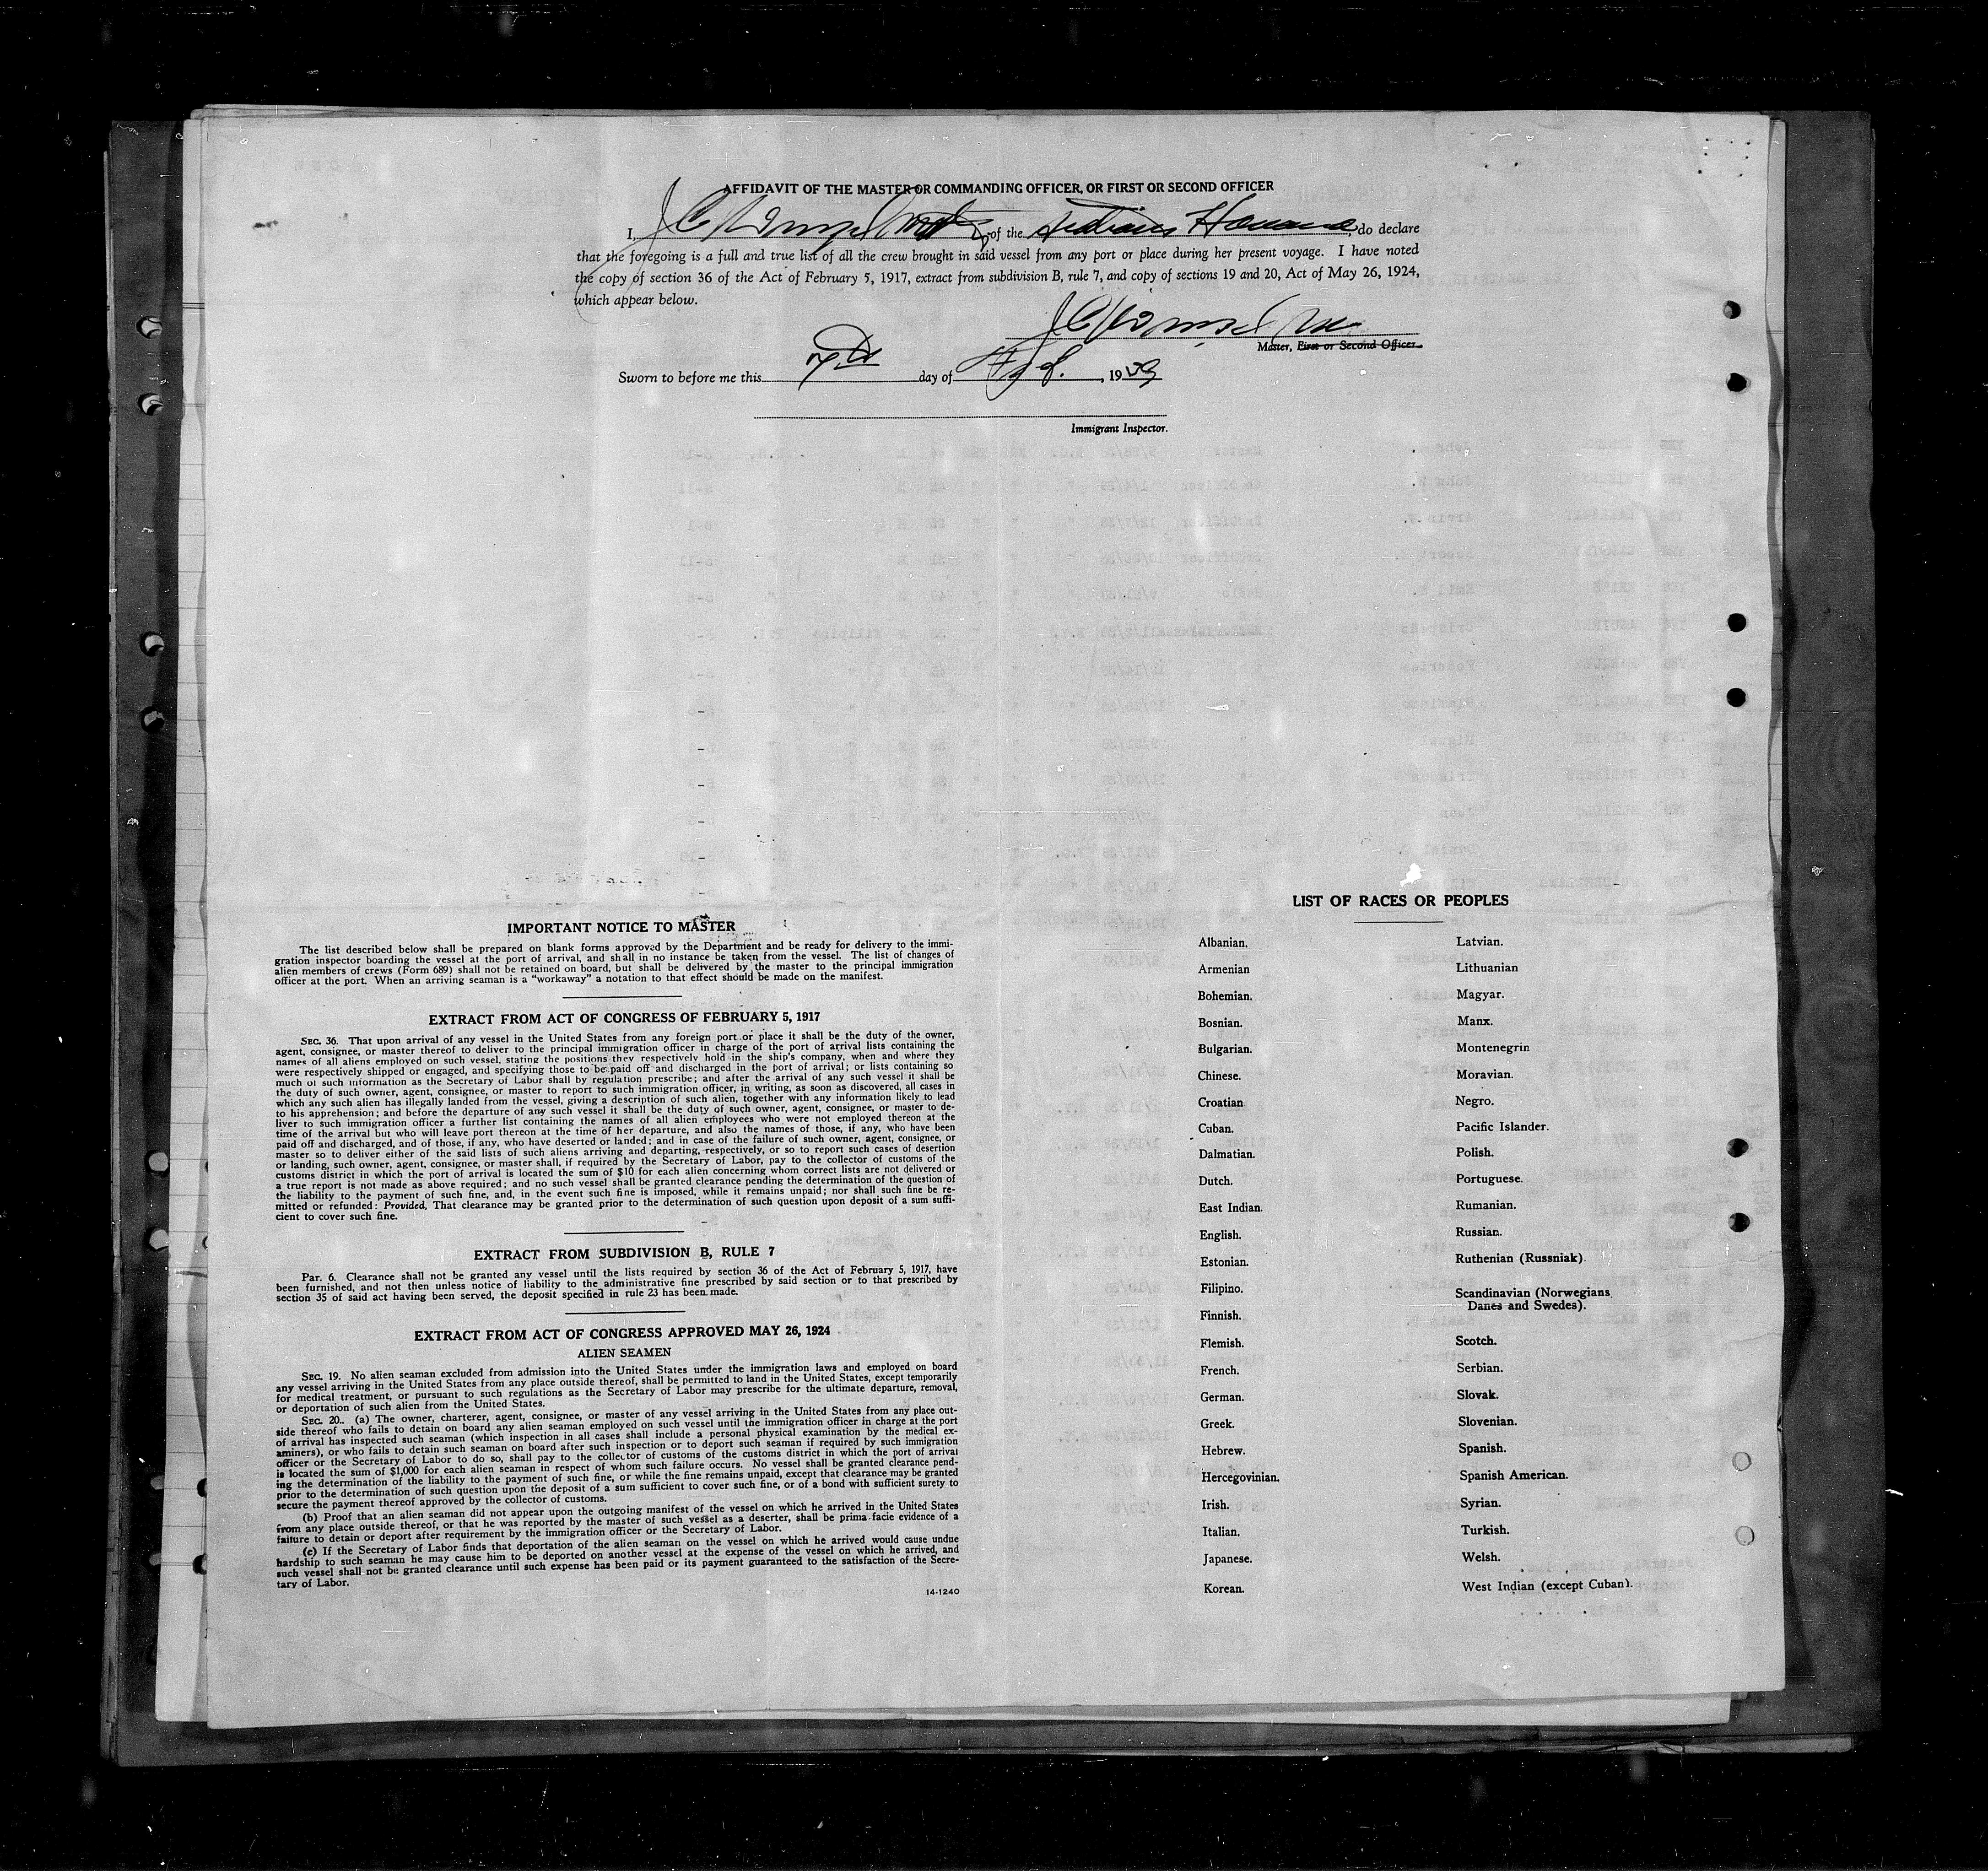 AFFIDAVIT OF THE MASTER OR COMMANDING OFFICER, OR FIRST OR SECOND OFFICER
I, of the do declare
that the foregoing is a full and true list of all the crew brought in said vessel from any port or place during her present voyage. I have noted
the copy of section 36 of the Act of February 5, 1917, extract from subdivision B, rule 7, and copy of sections 19 and 20, Act of May 26, 1924,
which appear below.
Master, First or Second Officer.
Sworn to before me this 7th day of 19
Immigrant Inspector.
IMPORTANT NOTICE TO MASTER
The list described below shall be prepared on blank forms approved by the Department and be ready for delivery to the immi-
gration inspector boarding the vessel at the port of arrival, and shall in no instance be taken from the vessel. The list of changes of
alien members of crews (Form 689) shall not be retained on board, but shall be delivered by the master to the principal immigration
officer at the port. When an arriving seaman is a "workaway" a notation to that effect should be made on the manifest.
EXTRACT FROM ACT OF CONGRESS OF FEBRUARY 5, 1917
SEC. 36. That upon arrival of any vessel in the United States from any foreign port or place it shall be the duty of the owner,
agent, consignee, or master thereof to deliver to the principal immigration officer in charge of the port of arrival lists containing the
names of all aliens employed on such vessel, stating the positions they respectively hold in the ship's company, when and where they
were respectively shipped or engaged, and specifying those to be paid off and discharged in the port of arrival; or lists containing so
much of such information as the Secretary of Labor shall by regulation prescribe; and after the arrival of any such vessel it shall be
the duty of such owner, agent, consignee, or master to report to such immigration officer, in writing, as soon as discovered, all cases in
which any such alien has illegally landed from the vessel, giving a description of such alien, together with any information likely to lead
to his apprehension; and before the departure of any such vessel it shall be the duty of such owner, agent, consignee, or master to de-
liver to such immigration officer a further list containing the names of all alien employees who were not employed thereon at the
time of the arrival but who will leave port thereon at the time of her departure, and also the names of those, if any, who have been
paid off and discharged, and of those, if any, who have deserted or landed; and in case of the failure of such owner, agent, consignee, or
master so to deliver either of the said lists of such aliens arriving and departing, respectively, or so to report such cases of desertion
or landing, such owner, agent, consignee, or master shall, if required by the Secretary of Labor, pay to the collector of customs of the
customs district in which the port of arrival is located the sum of $10 for each alien concerning whom correct lists are not delivered or
a true report is not made as above required; and no such vessel shall be granted clearance pending the determination of the question of
the liability to the payment of such fine, and, in the event such fine is imposed, while it remains unpaid; nor shall such fine be re-
mitted or refunded: Provided, That clearance may be granted prior to the determination of such question upon deposit of a sum suffi-
cient to cover such fine.
EXTRACT FROM SUBDIVISION B, RULE 7
Par. 6. Clearance shall not be granted any vessel until the lists required by section 36 of the Act of February 5, 1917, have
been furnished, and not then unless notice of liability to the administrative fine prescribed by said section or to that prescribed by
section 35 of said act having been served, the deposit specified in rule 23 has been made.
EXTRACT FROM ACT OF CONGRESS APPROVED MAY 26, 1924
ALIEN SEAMEN
SEC. 19. No alien seaman excluded from admission into the United States under the immigration laws and employed on board
any vessel arriving in the United States from any place outside thereof, shall be permitted to land in the United States, except temporarily
for medical treatment, or pursuant to such regulations as the Secretary of Labor may prescribe for the ultimate departure, removal,
or deportation of such alien from the United States.
SEC. 20. (a) The owner, charterer, agent, consignee, or master of any vessel arriving in the United States from any place out-
side thereof who fails to detain on board any alien seaman employed on such vessel until the immigration officer in charge at the port
of arrival has inspected such seaman (which inspection in all cases shall include a personal physical examination by the medical ex-
aminers), or who fails to detain such seaman on board after such inspection or to deport such seaman if required by such immigration
officer or the Secretary of Labor to do so, shall pay to the collector of customs of the customs district in which the port of arrival
is located the sum of $1,000 for each alien seaman in respect of whom such failure occurs. No vessel shall be granted clearance pend-
ing the determination of the liability to the payment of such fine, or while the fine remains unpaid, except that clearance may be granted
prior to the determination of such question upon the deposit of a sum sufficient to cover such fine, or of a bond with sufficient surety to
secure the payment thereof approved by the collector of customs.
(b) Proof that an alien seaman did not appear upon the outgoing manifest of the vessel on which he arrived in the United States
from any place outside thereof, or that he was reported by the master of such vessel as a deserter, shall be prima facie evidence of a
failure to detain or deport after requirement by the immigration officer or the Secretary of Labor.
(c) If the Secretary of Labor finds that deportation of the alien seaman on the vessel on which he arrived would cause undue
hardship to such seaman he may cause him to be deported on another vessel at the expense of the vessel on which he arrived, and
such vessel shall not be granted clearance until such expense has been paid or its payment guaranteed to the satisfaction of the Secre-
tary of Labor.
14-1240
LIST OF RACES OR PEOPLES
Albanian.
Armenian
Bohemian.
Bosnian.
Bulgarian.
Chinese.
Croatian
Cuban.
Dalmatian.
Dutch.
East Indian.
English.
Estonian.
Filipino.
Finnish.
Flemish.
French.
German.
Greek.
Hebrew.
Hercegovinian.
Irish.
Italian.
Japanese.
Korean.
Latvian.
Lithuanian
Magyar.
Manx.
Montenegrin
Moravian.
Negro.
Pacific Islander.
Polish.
Portuguese.
Rumanian.
Russian.
Ruthenian (Russniak).
Scandinavian (Norwegians,
Danes and Swedes).
Scotch.
Serbian.
Slovak.
Slovenian.
Spanish.
Spanish American.
Syrian.
Turkish.
Welsh.
West Indian (except Cuban).